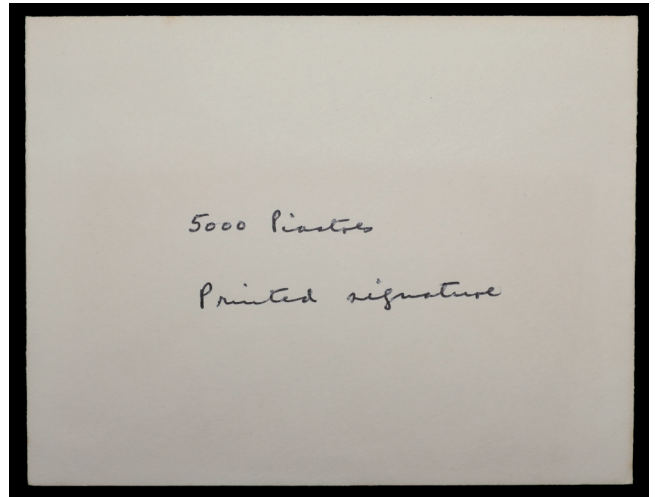 5000 Piastres
Printed signature